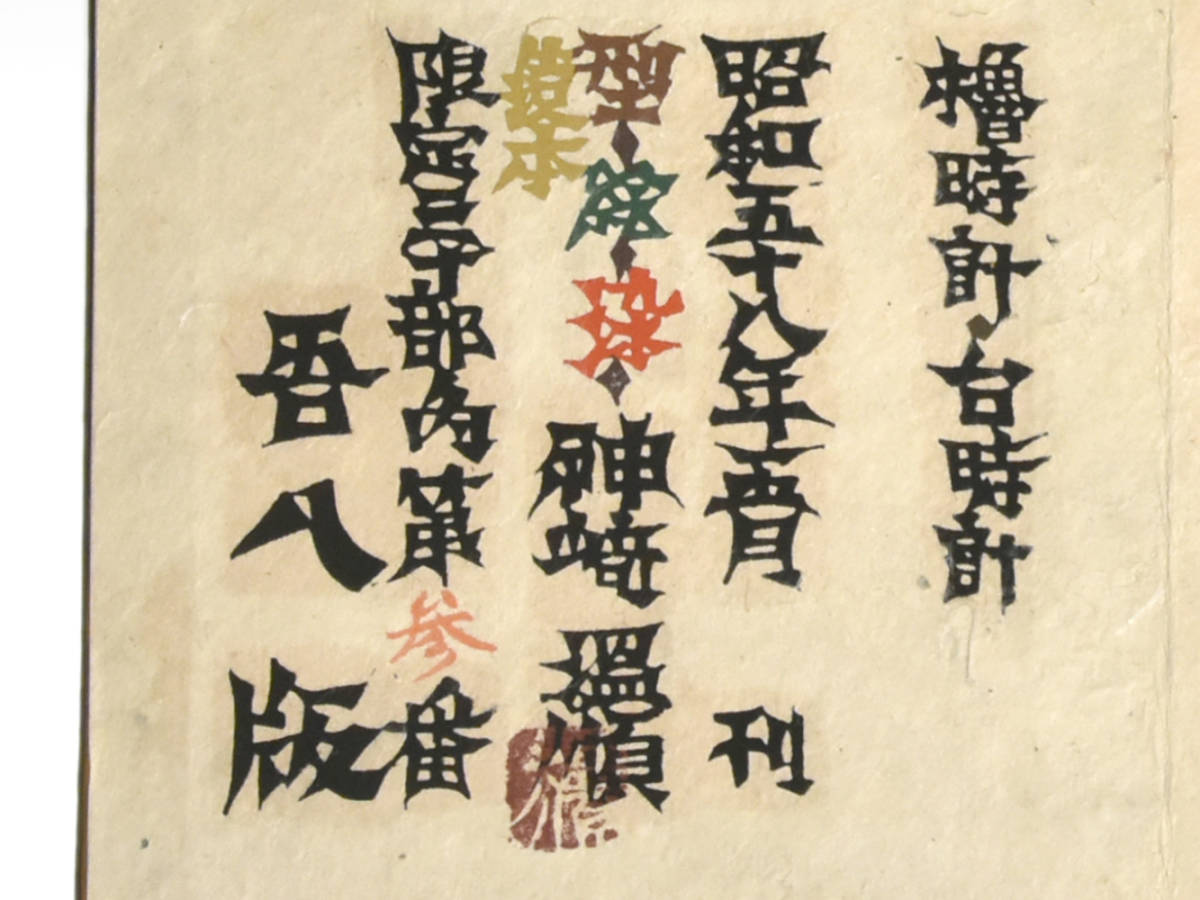 櫓時計・台時計
昭和五十八年 月 刊
型・絵・染 神崎 温順
限定 部内第参番
吾八版